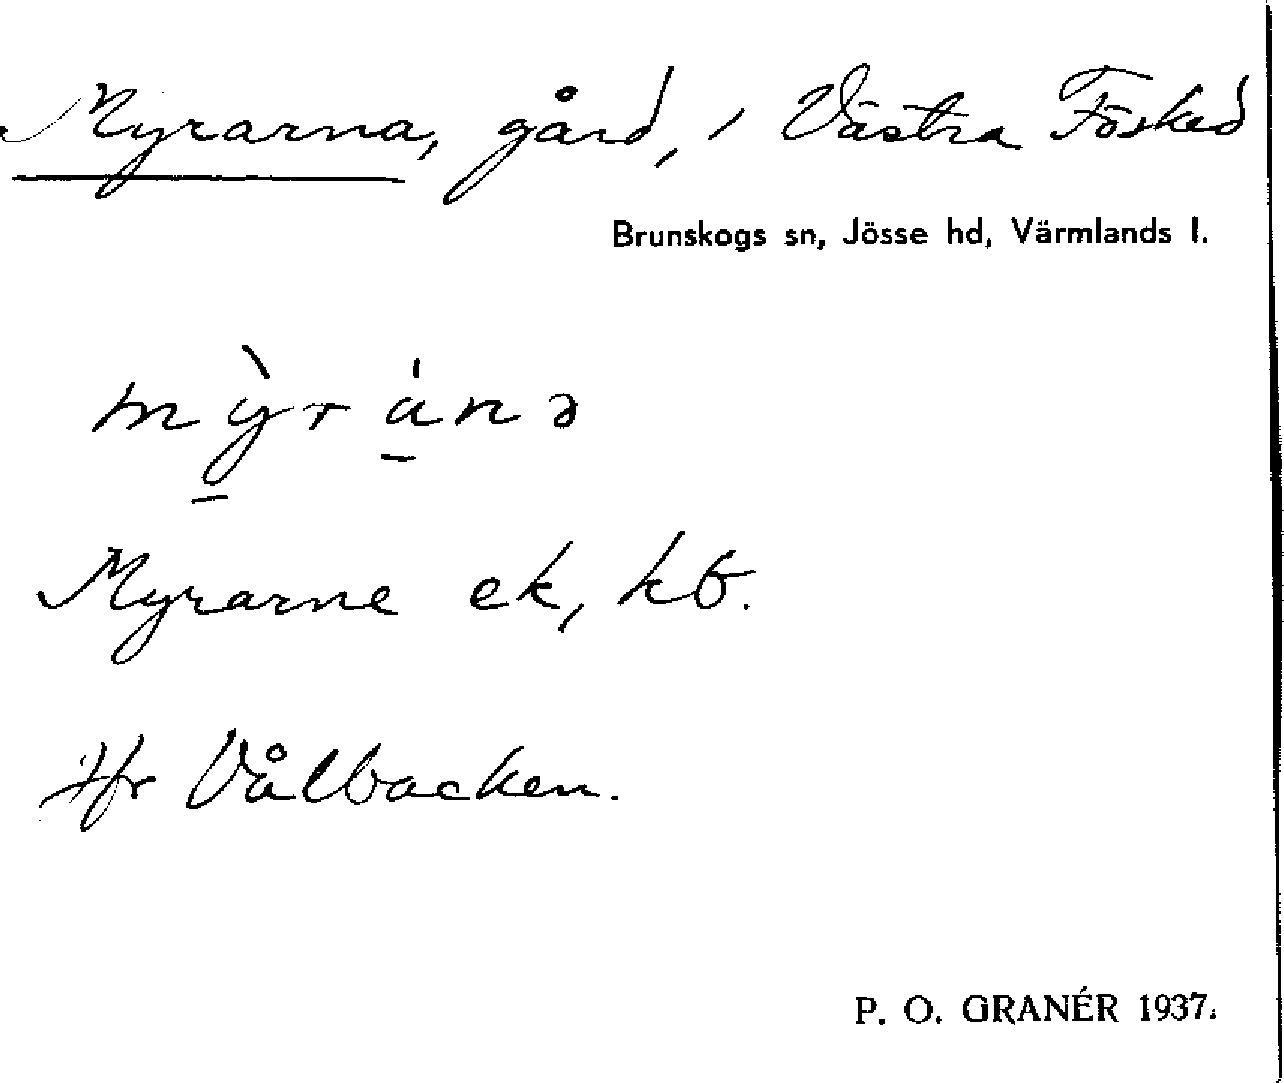 Myrarna, gård, i Västra Fösked
Brunskogs sn, Jösse hd, Värmlands l.
mỳ̠rá̠nə
Myrarne ek, kb.
Jfr Vålbacken.
P. O. GRANÉR 1937.